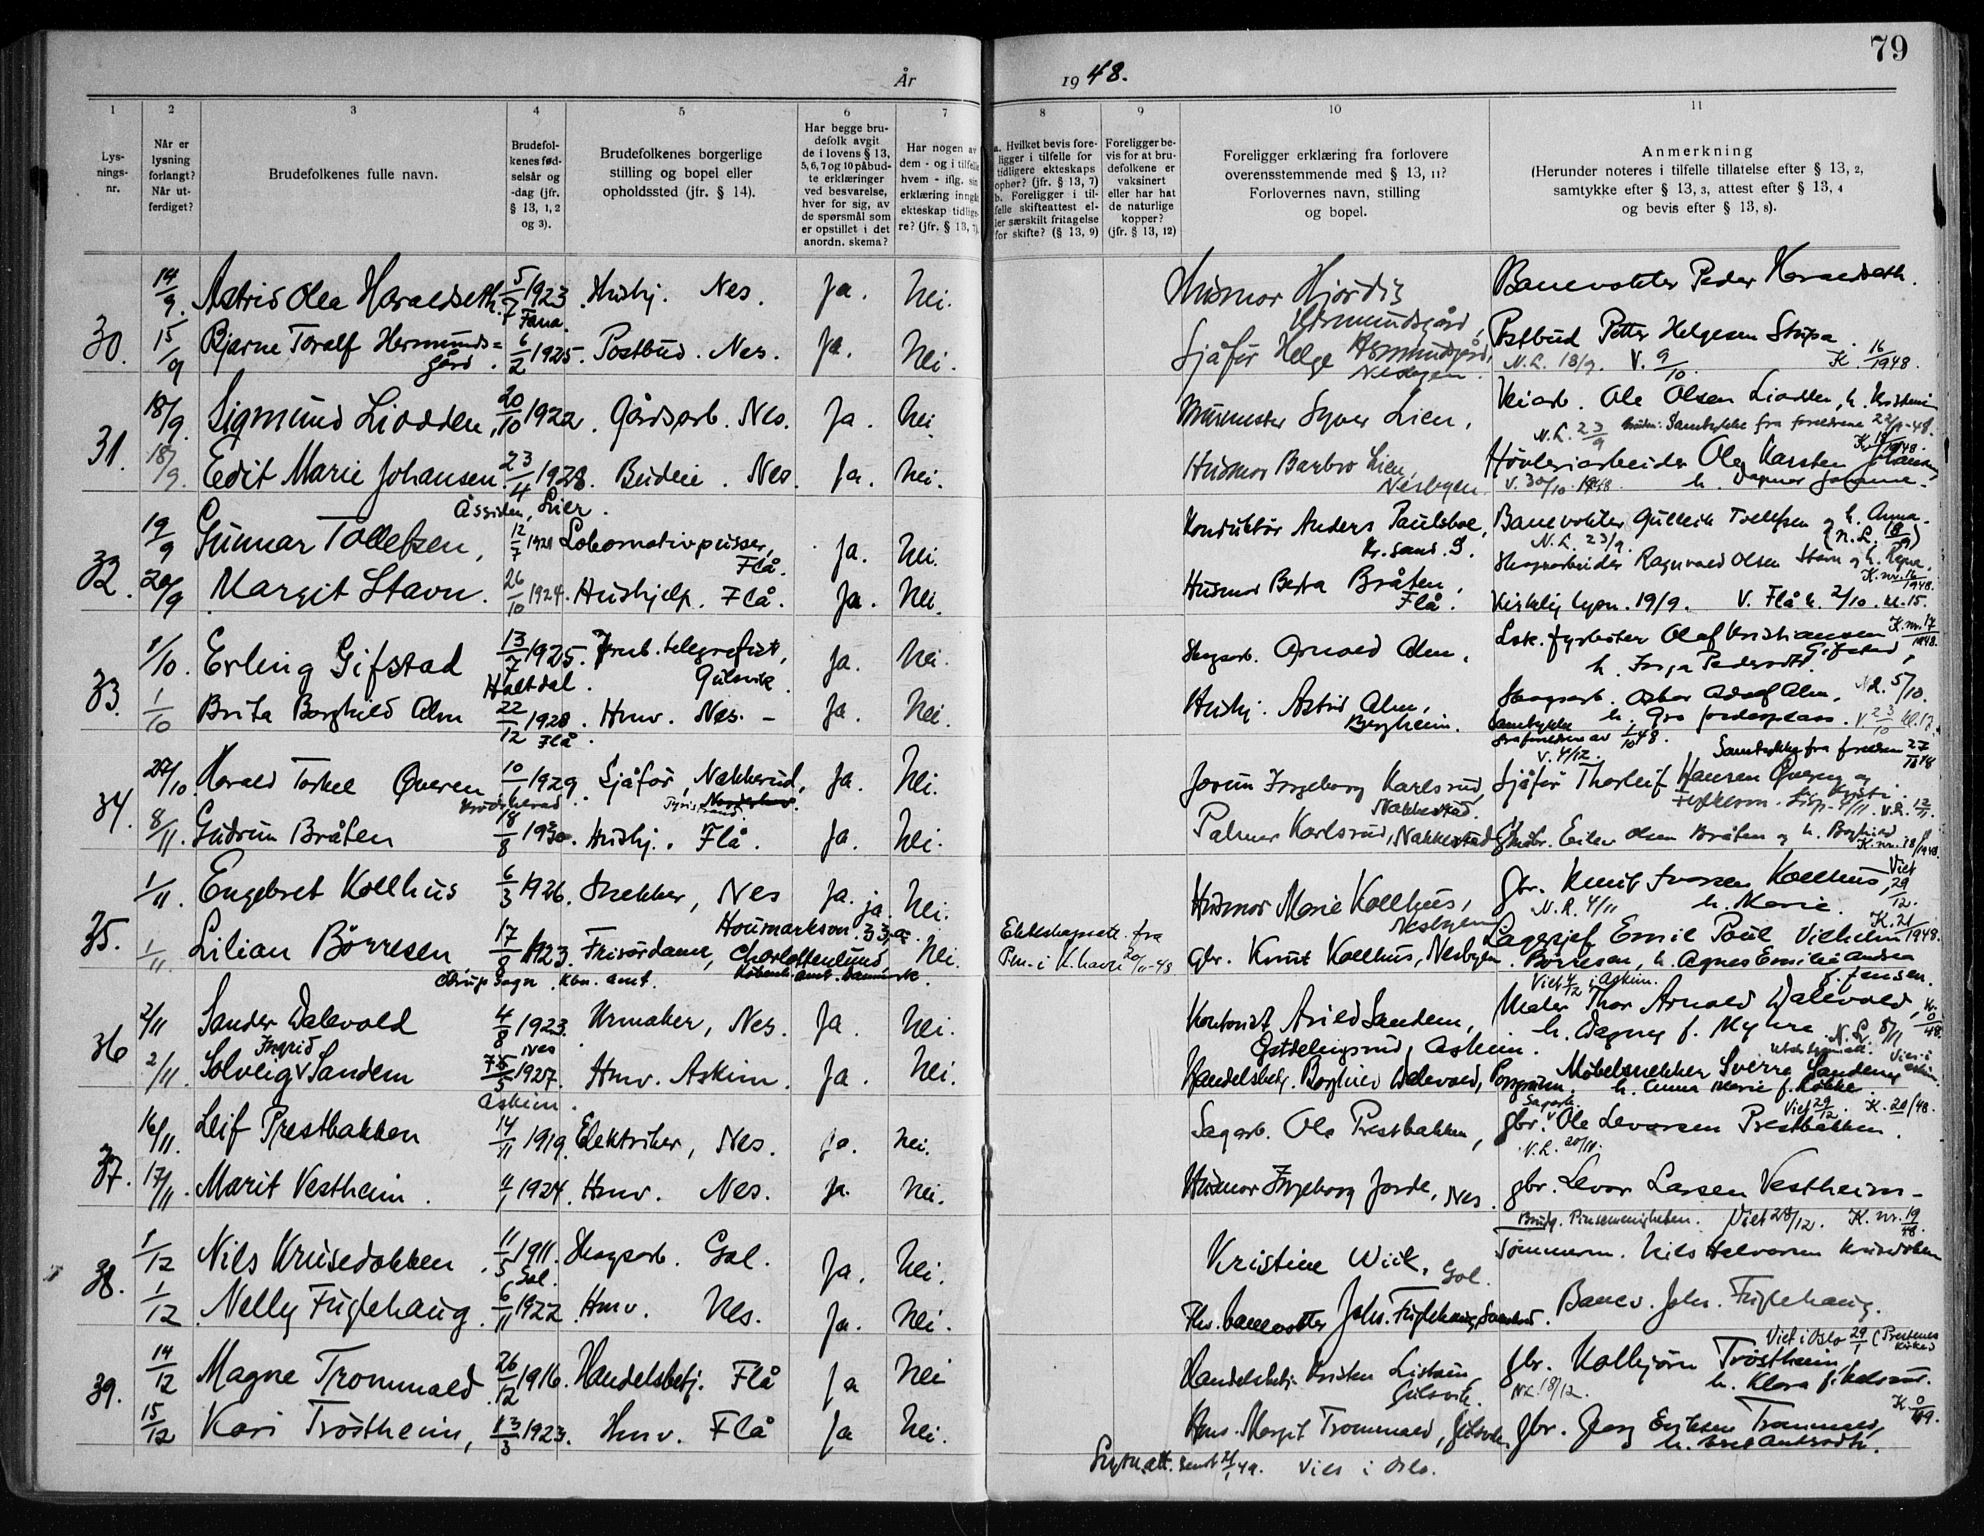 79
År 1948.
1 2 3 4 5 6 7 8 9 10 11
Lysningsnr.
Når er lysning forlangt? Når utferdiget?
Brudefolkenes fulle navn.
Brudefolkenes fødselsår og -dag (jfr. § 13, 1, 2 og 3).
Brudefolkenes borgerlige stilling og bopel eller opholdssted (jfr. § 14).
Har begge brudefolk avgit de i lovens § 13, 5, 6, 7 og 10 påbudte erklæringer ved besvarelse, hver for sig, av de spørsmål som er opstillet i det anordn. skema?
Har nogen av dem - og i tilfelle hvem - iflg. sin erklæring inngått ekteskap tidligere? (jfr. § 13, 7).
a. Hvilket bevis foreligger i tilfelle for tidligere ekteskaps ophør? (jfr. § 13, 7) b. Foreligger i tilfelle skifteattest eller særskilt fritagelse for skifte? (§ 13, 9)
Foreligger bevis for at brudefolkene er vaksinert eller har hat de naturlige kopper? (jfr. § 13, 12)
Foreligger erklæring fra forlovere overensstemmende med § 13, 11? Forlovernes navn, stilling og bopel.
Anmerkning (Herunder noteres i tilfelle tillatelse efter § 13, 2, samtykke efter § 13, 3, attest efter § 13, 4 og bevis efter § 13, 8).
14/9. Astrid Olea Haraldseth. 5/7 1923 Fana. Hushj. Nes. Ja. Nei. Husmor Hjördis Hermundsgård, Banevokter Peder Haraldseth.
30. 15/9 Bjarne Toralf Hermundsgård. 6/2 1925. Postbud. Nes. Ja. Nei. Sjåfør Helge Hermundsgård, Nesbyen. Postbud Petter Helgesen Stupa.
N.L. 18/9. V. 9/10. K. 16/1948.
31. 18/9. Sigmund Liodden, 20/10 1922. Gårdsarb. Nes. Ja. Nei. Murmester Syver Lien, Veiarb. Ole Olsen Liodden, h. Kristine
N.L. 23/9 Samtykke fra foreldrene
18/9. Edit Marie Johansen 23/4 1928. Budeie. Nes. Ja. Nei. Husmor Barbro Lien, Nesbyen. Høvleriarbeider Ole Karsten
Åssiden, Lier. V. 30/10. 1948
32. 19/9 Gunnar Tollefsen, 12/7 1921 Lokomotivpusser, Flå. Ja. Nei. Konduktör Anders Paulsboe, Kr.sand. S. Banevokter Gulleik Tollefsen og h. Anna.
N.L. 23/9.
20/9 Margit Stavn. 26/10 1924. Hushjelp. Flå. Ja. Nei. Husmor Berta Bråten, Flå. Skogsarbeider Ragnvald Olsen Stavn og h.
K. nr. 16/1948.
Kirkelig lysn. 19/9. V. Flå k. 2/10. kl. 15.
33. 1/10. Erling Gifstad 13/7 1925. Jernb. telegrafist, Gulsvik. Ja. Nei. Skogsarb. Arnold Alm, Lok. fyrbøter Olaf Kristiansen Gifstad,
Haltdal. K. nr. 17/1948.
1/10 Brita Borghild Alm 22/12 1928. Flå. Hmv. Nes. - Ja. Nei. Hushj. Astrid Alm, Bergheim. Skogsarb. Oskar Adolf Alm, N.L. 5/10.
h. Gro
Samtykke fra foreldrene av 1/10 48. V. 23/10 kl. 17.
34. 27/10. Harald Torkel Øveren 10/6 1929. Sjåför, Nakkerud, Ja. Nei. Jorun Ingeborg Karlsrud, Nakkerud. Sjåför Thorleif Hansen Øveren og
Samtykke fra
8/11. Gudrun Bråten 18/8 1930. Hushj. Flå. Ja. Nei. Palmer Karlsrud, Eilev Olsen Bråten og h. Borghild
K. nr. 18/1948.
35. 1/11. Engebret Kollhus 6/3 1926. Snekker, Nes Ja. Nei. Husmor Marie Kollhus, Nesbyen. gbr. Knut Iversen Kollhus, h. Marie.
Viet 29/12. N.L. 4/11 K. 21/1948.
1/11 Lilian Börresen 17/8 1923. Frisördame, Charlottenlund ja. Nei. gbr. Knut Kollhus, Nesbyen Lagersjef Emil Poul Vilhelm Börresen, h. Agnes Emilie Andrea f. Jensen.
Köbenh. amt. Danmark.
36 2/11 Sander Dalevold 4/8 1923. Nes Urmaker, Nes. Ja. Nei. Kontorist Arild Sandem, Askim. Maler Thor Arnold Dalevold, h. Dagny f. Myhre
Viet 4/12 i Askim.
2/11. Solveig Ingrid Sandem 1927. Askim. Hmv. Askim. Ja. Nei. Handelsbetj. Borghild Dalevold, Møbelsnekker Sverre Sandem h. Anna Marie f. Løkke
37. 16/11. Leif Prestbakken 14/11 1919. Elektriker, Nes. Ja. Nei. Sagarb. Ole Prestbakken, gbr. Ole Levorsen Prestbakken.
Viet 29/12. K. 20/48. N.L. 20/11.
17/11. Marit Vestheim. 1924. Hmv. Nes. Ja. Nei. Husmor Ingeborg Jorde, Nes. gbr. Levor Larsen Vestheim -
Brudg. Pinsemenigheten. Viet 28/12. K. nr. 19/48
38. 1/12 Nils Krusedokken. 11/5 1911. Gol. Skogsarb. Gol. Ja. Nei. Kristine Wiik, Gol. Tömmerm. Nils Halvorsen Krusedokken
1/12 Nelly Fuglehaug. 6/11 1922. Hmv. Nes. Ja. Nei. Fhv. banevokter Johs. Fuglehaug, Banev. Johs. Fuglehaug.
39. 14/12 Magne Trommald. 26/12 1916. Handelsbetj. Flå Ja Nei Handelsbetj. Kristen Gulsvik. gbr. Kolbjørn Tröstheim, h. Klara
Viet i Oslo 29/1 N.L. 18/12.
15/12 Kari Tröstheim, 13/3 1923. Hmv. Flå Ja Nei. Hus. Margit Trommald, Gulsvik, gbr. Georg Eriksen Trommald,
Lysn.att. sendt 21/1 49. Viet i Oslo.